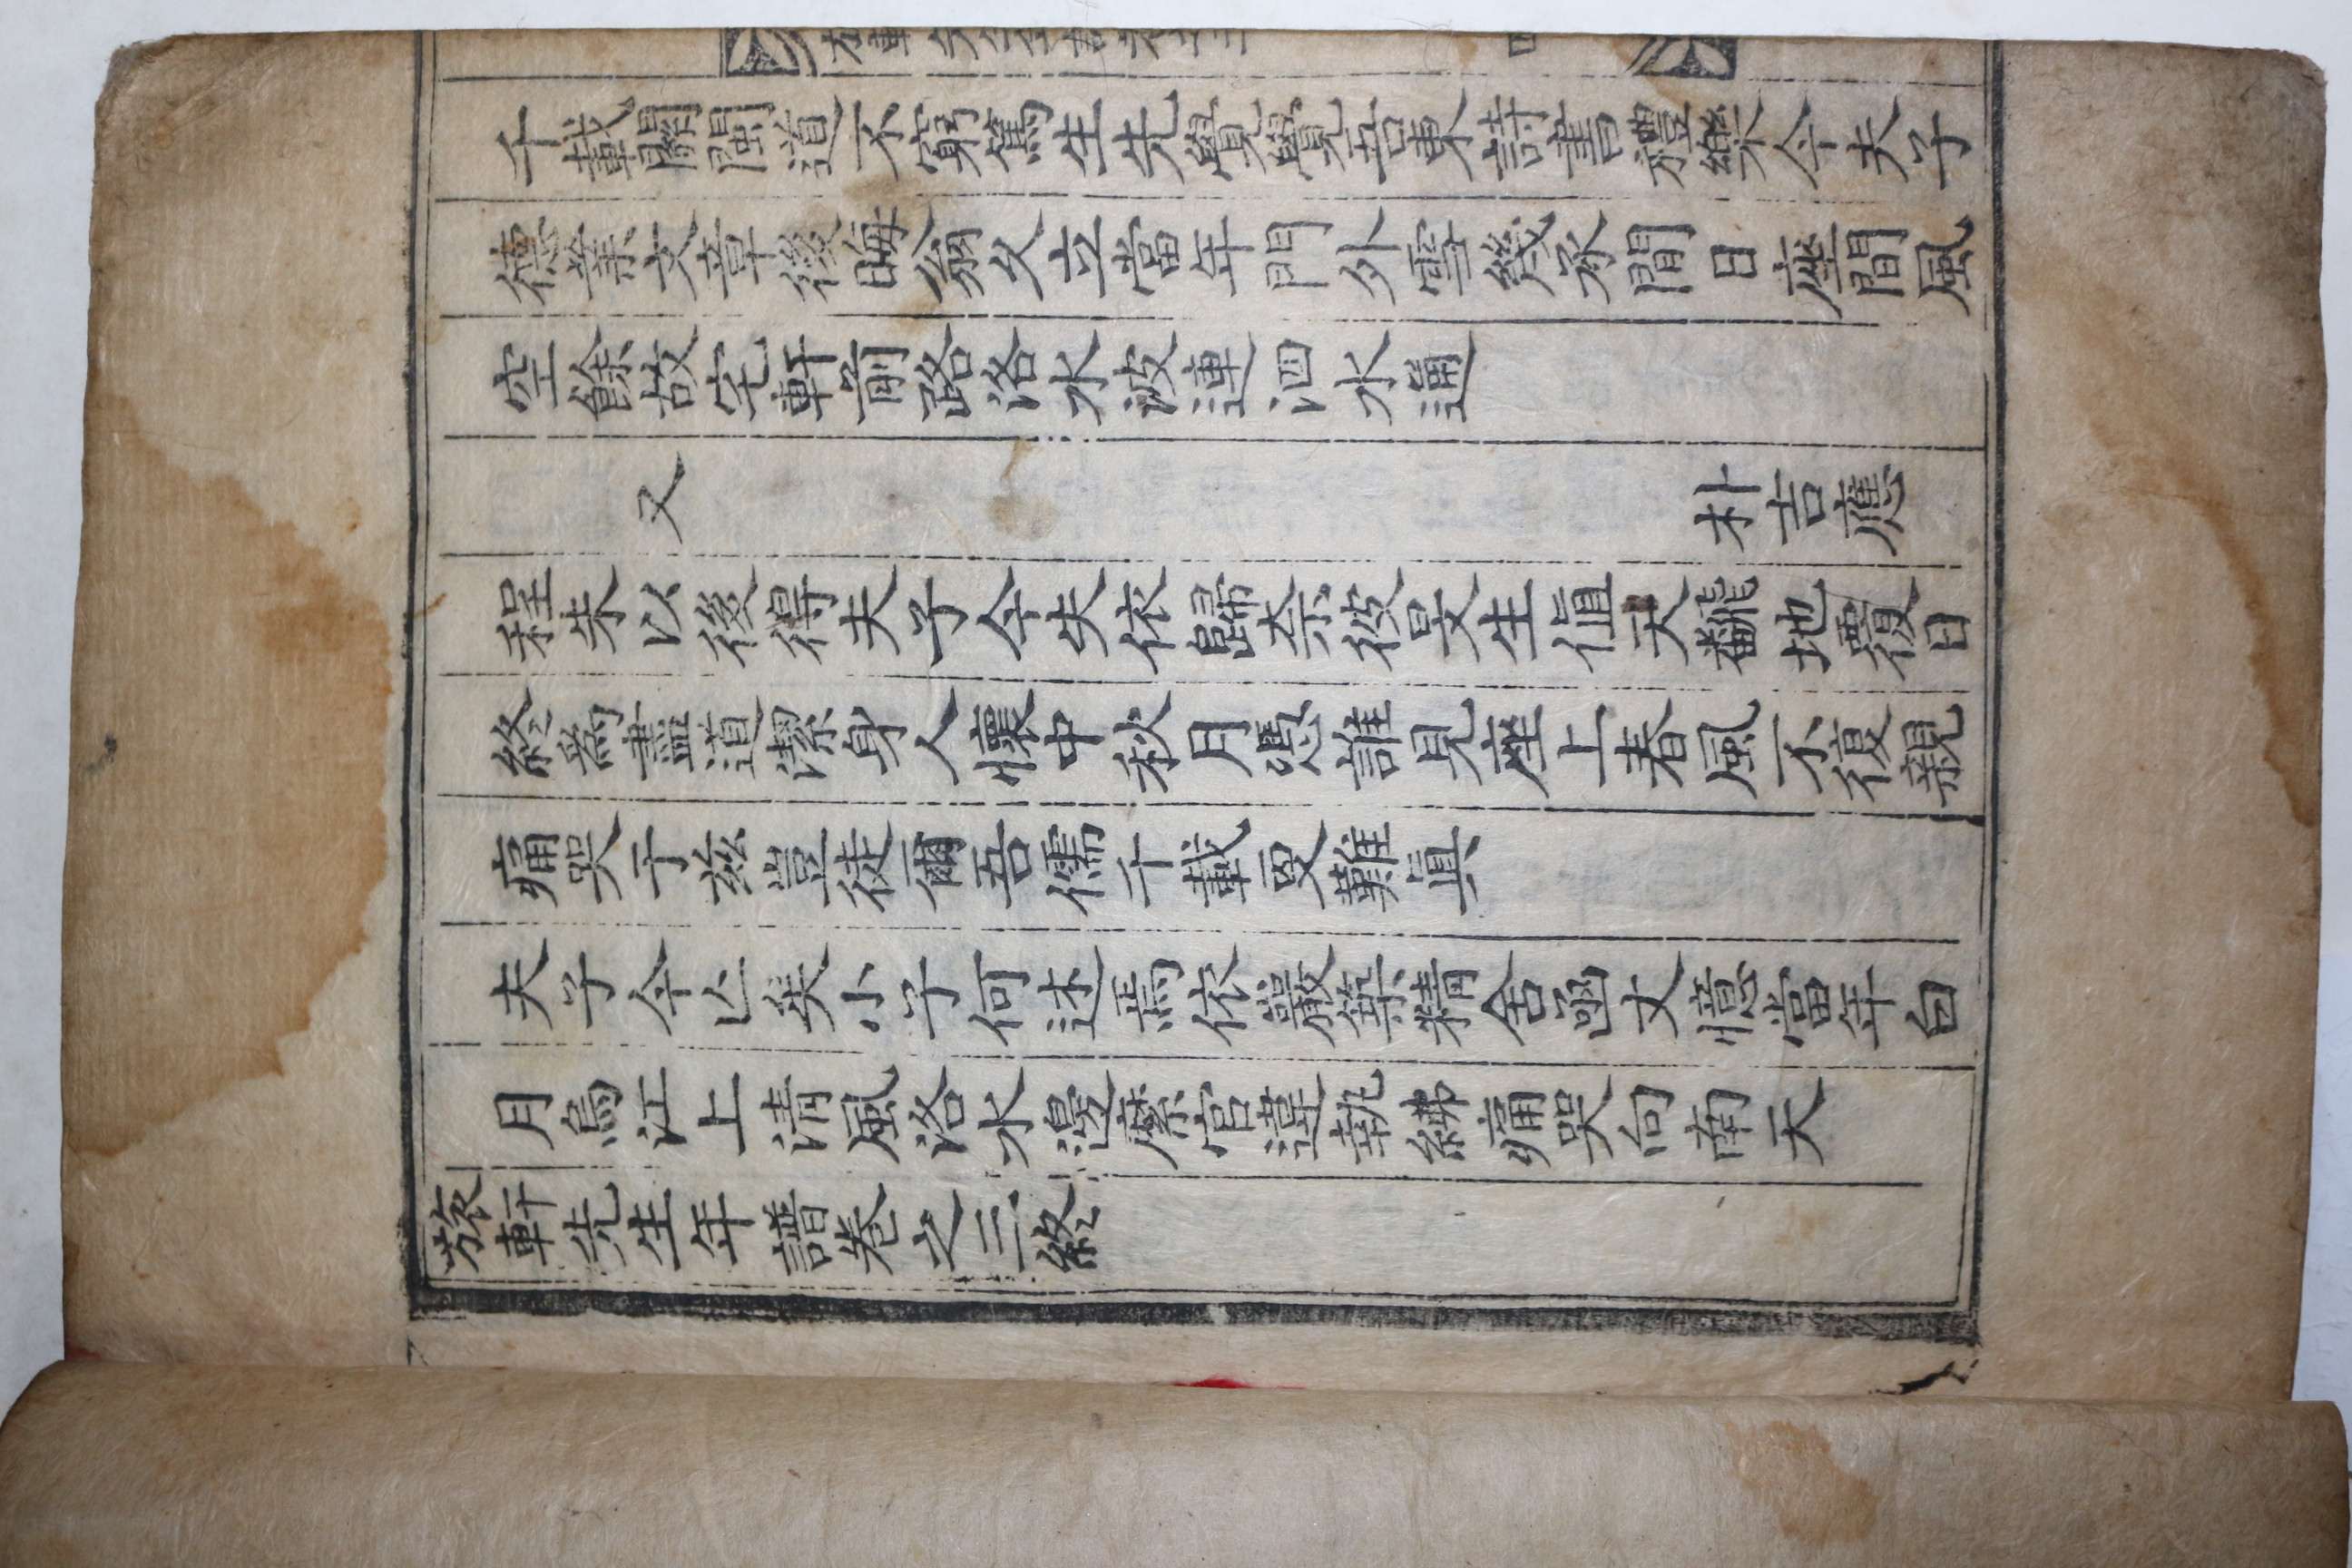 旅軒先生年譜卷之三
四
千載關閩道不窮篤生先覺覺吾東詩書禮樂今夫子
德業文章後晦翁久立當年門外雪幾承間日座間風
空餘故宅軒前路洛水波連泗水通
又 朴吉應
程朱以後得夫子今失依歸奈彼旻生値天飜地覆日
終爲盡道潔身人懷中秋月憑誰見座上春風不復親
痛哭于玆豈徒爾吾儒千載更難眞
夫子今亾矣小子何述焉依巖築精舍函丈憶當年白
月烏江上清風洛水邊縻官違執紼痛哭向南天
旅軒先生年譜卷之三終